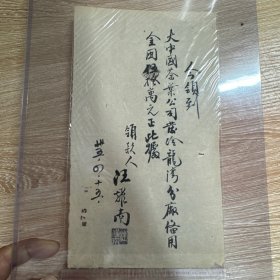 今領到
大中國茶業公司蒙冷龍灣分廠俻用
金圓伍拾萬元正此據
領款人 汪雄南
卅五.四.十五.